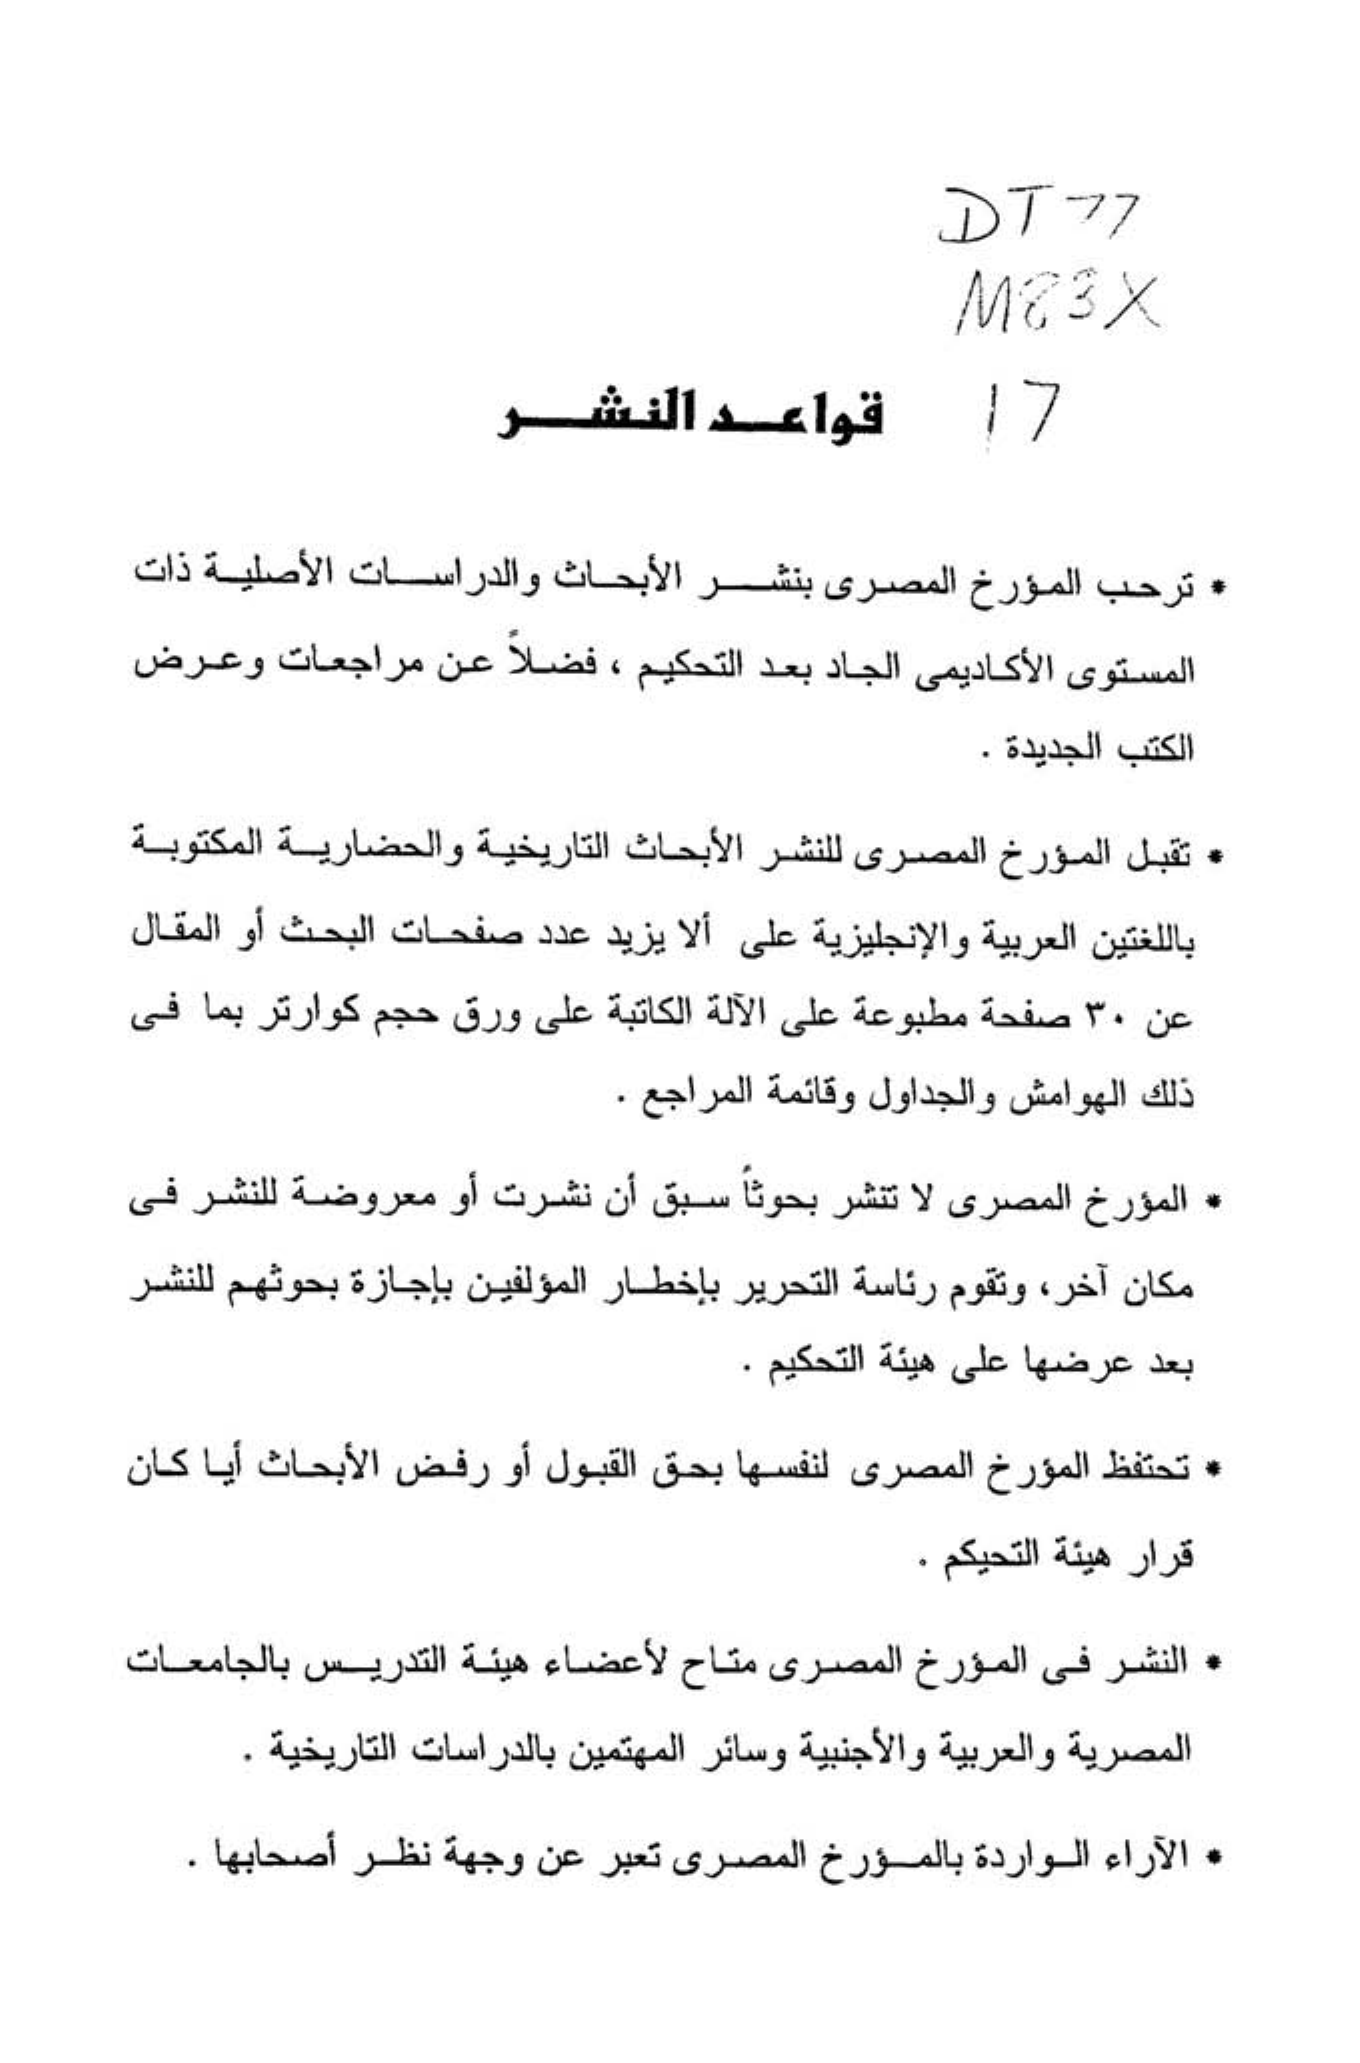 DT 77
M83X
17
قواعد النشر
* ترحب المؤرخ المصرى بنشر الأبحاث والدراسات الأصلية ذات
المستوى الأكاديمى الجاد بعد التحكيم ، فضلاً عن مراجعات وعرض
الكتب الجديدة .
* تقبل المؤرخ المصرى للنشر الأبحاث التاريخية والحضارية المكتوبة
باللغتين العربية والإنجليزية على ألا يزيد عدد صفحات البحث أو المقال
عن ٣٠ صفحة مطبوعة على الآلة الكاتبة على ورق حجم كوارتر بما فى
ذلك الهوامش والجداول وقائمة المراجع .
* المؤرخ المصرى لا تنشر بحوثاً سبق أن نشرت أو معروضة للنشر فى
مكان آخر ، وتقوم رئاسة التحرير بإخطار المؤلفين بإجازة بحوثهم للنشر
بعد عرضها على هيئة التحكيم .
* تحتفظ المؤرخ المصرى لنفسها بحق القبول أو رفض الأبحاث أيا كان
قرار هيئة التحيكم .
* النشر فى المؤرخ المصرى متاح لأعضاء هيئة التدريس بالجامعات
المصرية والعربية والأجنبية وسائر المهتمين بالدراسات التاريخية .
* الآراء الواردة بالمؤرخ المصرى تعبر عن وجهة نظر أصحابها .